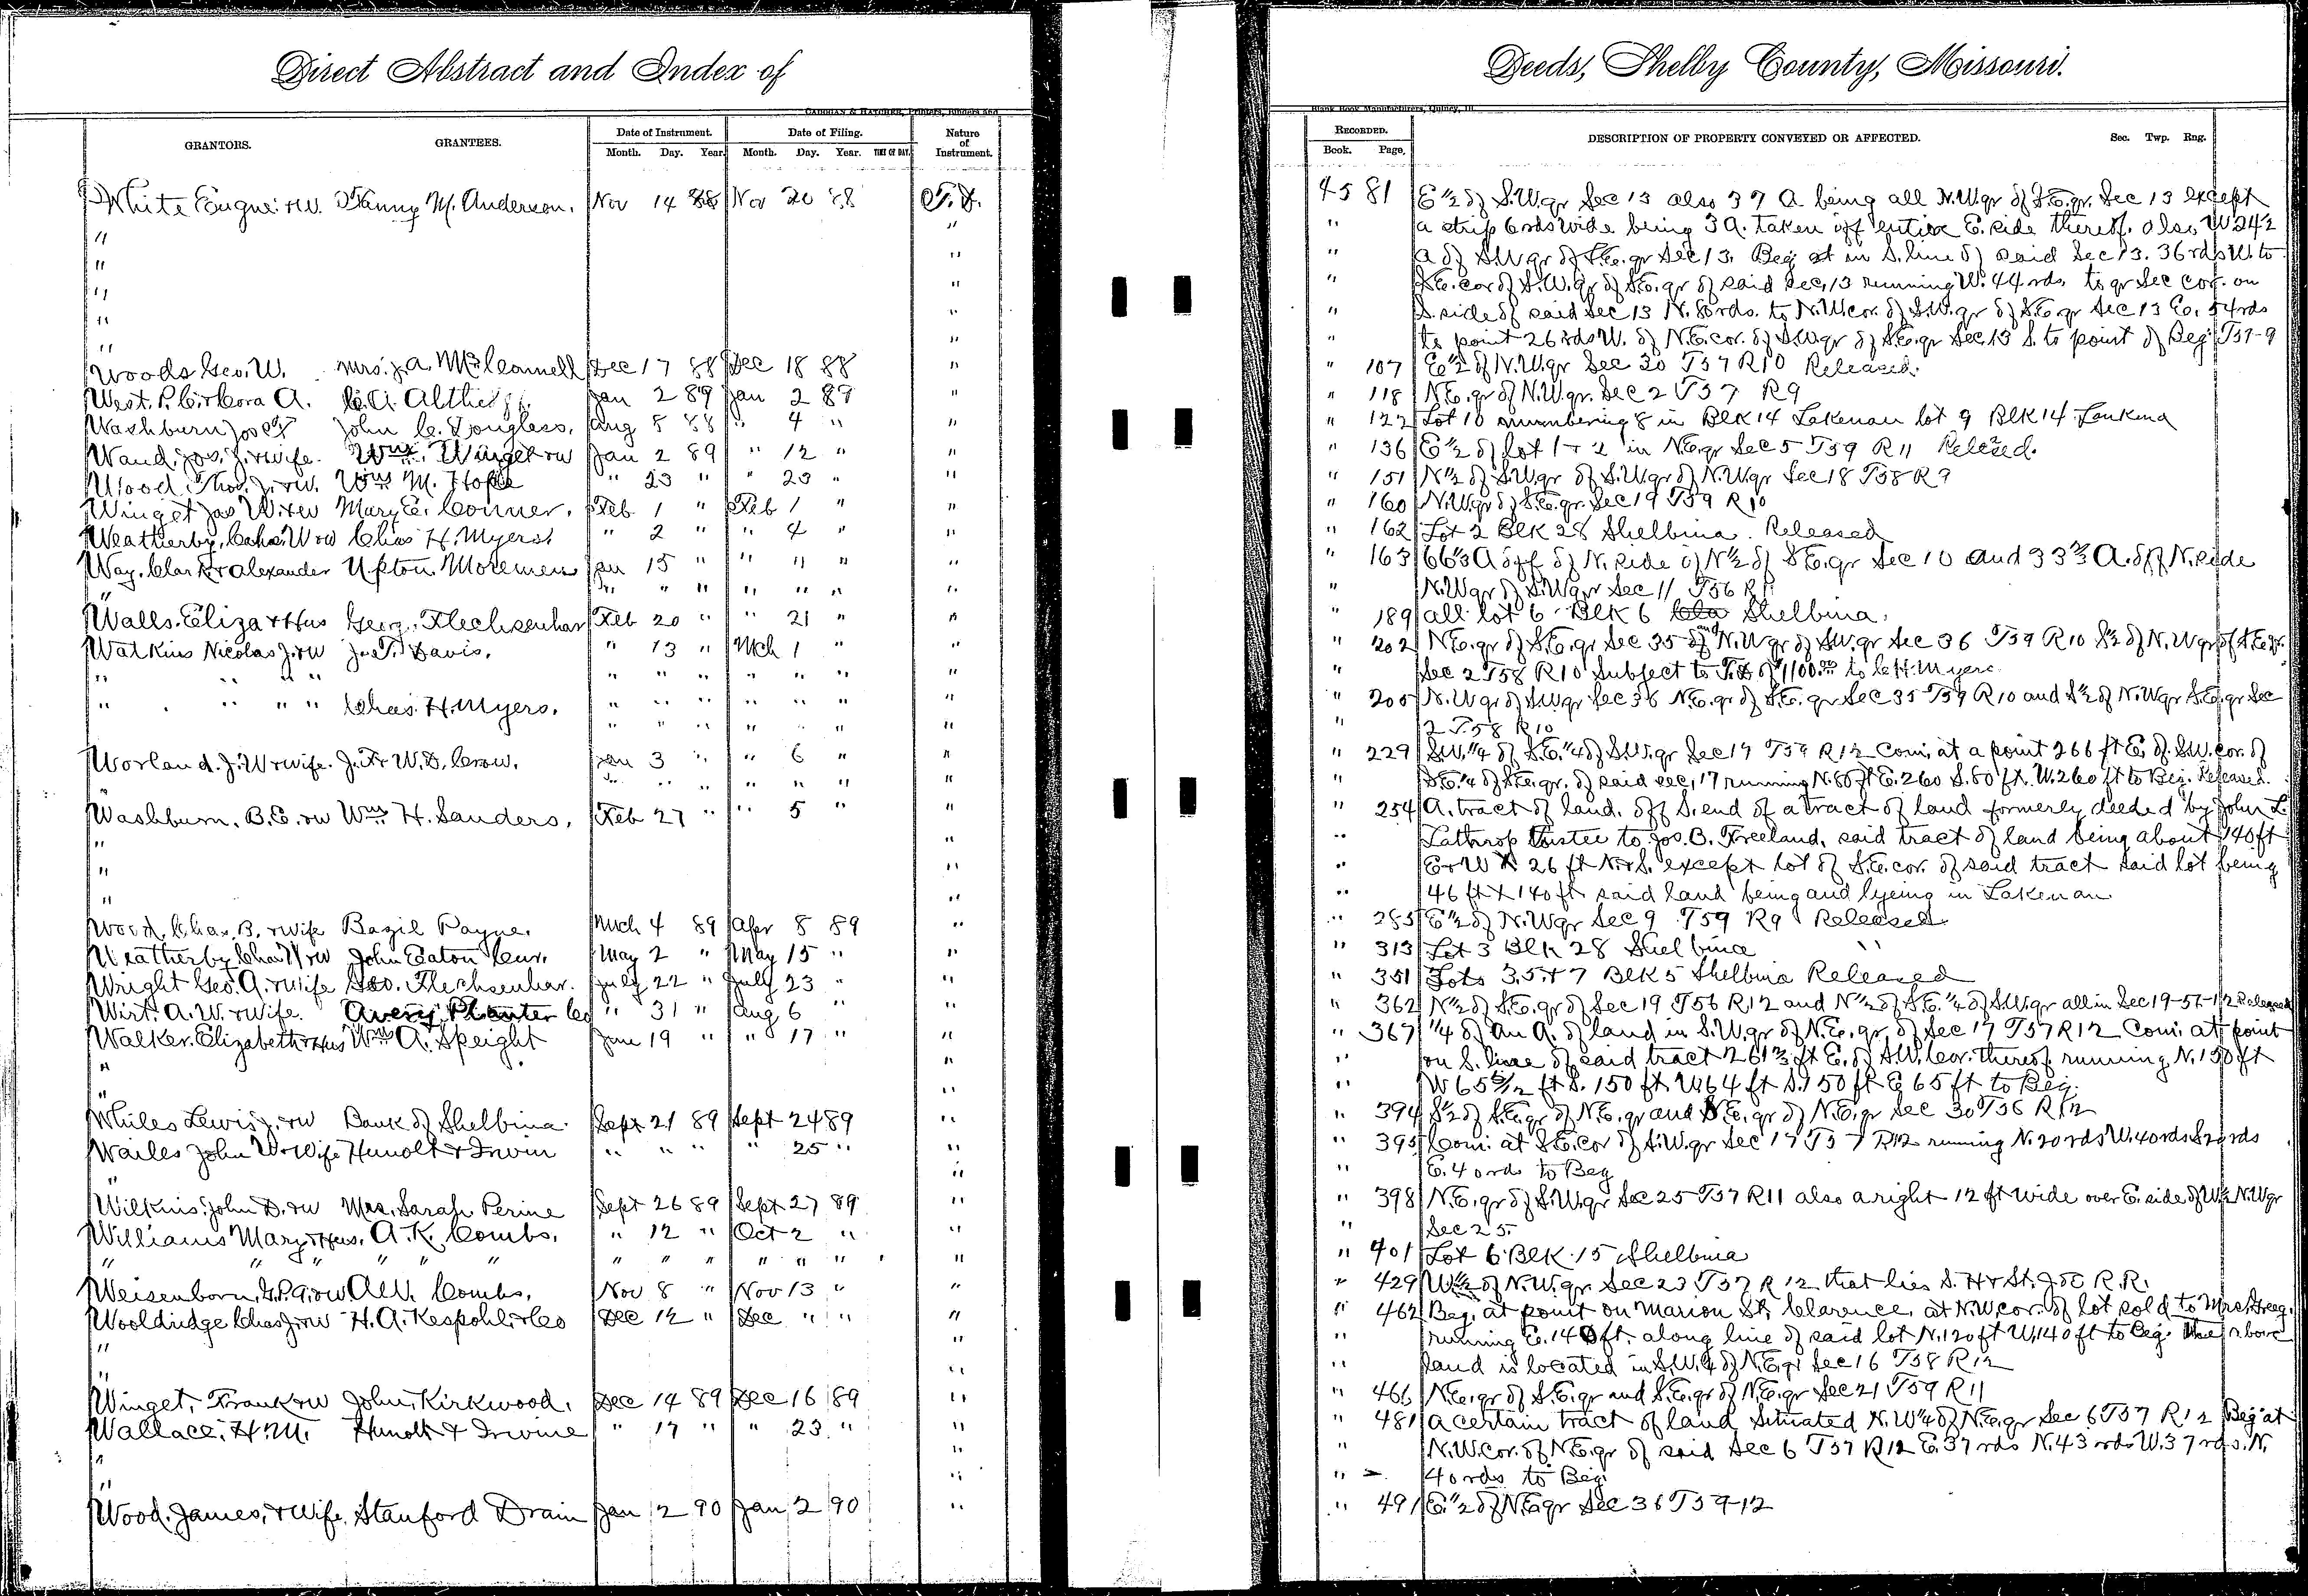 Direct Abstract and Index of
Deeds, Shelby County, Missouri.
GRANTORS. GRANTEES. Date of Instrument. Month. Day. Year. Date of Filing. Month. Day. Year. TIME OF DAY. Nature of Instrument.
RECORDED. Book. Page. DESCRIPTION OF PROPERTY CONVEYED OR AFFECTED. Sec. Twp. Rng.
Blank Book Manufacturers, Quincy, Ill.
White Eugne & w. Fanny M. Anderson. Nov 14 88 Nov 20 88
" "
" "
" "
" "
" "
Woods Geo. W. Mrs. J. A. McConnell Dec 17 88 Dec 18 88 "
West. P. C. & Cora A. C. A. Jan 2 89 Jan 2 89 "
Washburn John C. Douglass. Aug 8 88 " 4 " "
Wand. Jos. J. & wife. Wm. Winget & w Jan 2 89 " 12 " "
Wood Thos. J. & w. Wm M. " 23 " " 23 " "
Winget Jas W. & w Mary E. Conner. Feb 1 " Feb 1 " "
Weatherby, Chas. W & w Chas H. Myers. " 2 " " 4 " "
Way. Clark & Alexander Upton Moremen Jan 15 " " 11 " "
" " " " " " " "
Walls. Eliza & Hus Geo. Flechsenhar Feb 20 " " 21 " "
Watkins Nicolas J. & w J. T. Davis. " 13 " Mch 1 " "
" " " " " " " " " " " "
" " " " Chas. H. Myers. " " " " " " "
" " " " " " "
Worland. J. W & wife. J. F & W. D. Crow. Jan 3 " " 6 " "
" " " " " " "
Washburn. B. E. & w Wm H. Sanders. Feb 27 " " 5 " "
" "
" "
" "
Wood, Chas. B. & wife Bazil Payne. Mch 4 89 Apr 8 89 "
Weatherby Chas W & w John Eaton Cur. May 2 " May 15 " "
Wright Geo. A. & wife Geo. Flechsenhar. July 22 " July 23 " "
Wirt. A. W. & Wife. Avery Planter Co " 31 " Aug 6 " "
Walker. Elizabeth & Hus Wm A. Speight June 19 " " 17 " "
" "
"
Whiles Lewis J. & w Bank of Shelbina. Sept 21 89 Sept 24 89 "
Wailes John W & Wife Hunolt & Irwin " " " " 25 " "
"
Wilkins. John D. & w Mrs. Sarah Perine Sept 26 89 Sept 27 89 "
Williams Mary & Hus. A. K. Combs. " 12 " Oct 2 " "
" " " " " " " " " " " "
Weisenborn, & w A. K. Combs. Nov 8 " Nov 13 " "
Wooldridge Chas J & w H. A. Kespohl & Co Dec 12 " Dec " " "
" "
" "
Winget, Frank & w John, Kirkwood. Dec 14 89 Dec 16 89 "
Wallace, H. M. Hunolt & Irvine " 17 " " 23 " "
" "
" "
Wood. James, & Wife, Stanford Drain Jan 2 90 Jan 2 90 "
45 81 E ½ of S.W.qr Sec 13 also 37 A being all N.W.qr of S.E.qr. Sec 13 except
" a strip 6 rds wide being 3 A. taken off entire E. side thereof. also W 24½
" A of S.W qr of S.E. qr Sec 13. Beg at in S. line of said Sec 13. 36 rds W. to
" S.E. cor of S.W. qr of S.E. qr of said Sec, 13 running W. 44 rds. to qr Sec cor. on
" S. side of said Sec 13 N. 80 rds. to N.W. cor. of S.W. qr of S.E. qr Sec 13 E. 54 rds
" to point 26 rds W. of N.E. cor. of S.W qr of S.E. qr Sec. 13 S. to point of Beg. T57-9
" 107 E ½ of N.W. qr Sec 30 T57 R10 Released.
" 118 N.E. qr of N.W. qr. Sec 2 T57 R9
" 122 Lot 10 numbering 8 in Blk 14 Lakenan lot 9 Blk 14
" 136 E ½ of lot 1 & 2 in N.E. qr Sec 5 T59 R11 Released.
" 151 N ½ of S.W. qr of S.W. qr of N.W. qr Sec 18 T58 R9
" 160 N.W. qr of S.E. qr. Sec 19 T59 R10
" 162 Lot 2 Blk 28 Shelbina. Released
" 163 66⅔ A off of N. side of N ½ of S.E. qr Sec 10 and 33⅓ A. off N. side
" N.W qr of S.W qr Sec 11 T56 R11
" 189 all lot 6 Blk 6 Shelbina.
" 202 N.E. qr of S.E. qr Sec 35 and N.W qr of S.W. qr Sec 36 T59 R10 S ½ of N.W qr of S.E. qr.
" Sec 2 T58 R10 Subject to T.D. of $1100.00 to C. H. Myers.
" 205 N.W qr of S.W qr Sec 36 N.E. qr of S.E. qr Sec 35 T59 R10 and S ½ of N.W qr S.E. qr Sec
" 2 T.58 R10
" 229 S.W. ¼ of S.E. ¼ of S.W. qr Sec 17 T57 R12 Com. at a point 266 ft E. of S.W. cor. of
" S.E. ¼ of S.E. qr. of said Sec, 17 running N. 80 ft E. 260 S. 80 ft. W. 260 ft to Beg. Released.
" 254 A. tract of land. off S. end of a tract of land formerly deeded by John L.
" Lathrop Trustee to Jos. B. Freeland, said tract of land being about 140 ft
" E & W & 26 ft N & S. except lot of S.E. cor. of said tract said lot being
" 46 ft X 140 ft said land being and lyeing in Lakenan
" 285 E ½ of N.W qr Sec 9 T59 R9 Released
" 313 Lot 3 Blk 28 Shelbina "
" 351 Lots 3.5 & 7 Blk 5 Shelbina Released
" 362 N ½ of S.E. qr of Sec 19 T56 R12 and N ½ of S.E. ¼ of S.W. qr all in Sec 19-57-12 Released
" 367 ¼ of an A. of land in S.W. qr of N.E. qr. of Sec 17 T57 R12 Com. at point
" on S. line of said tract 261⅔ ft E. of S.W. Cor. thereof running N. 150 ft
" W 65 ft S. 150 ft W 64 ft S. 150 ft E 65 ft to Beg.
" 394 S ½ of S.E. qr of N.E. qr and N.E. qr of N.E. qr Sec 30 T56 R12
" 395 Com. at S.E. cor of S.W. qr Sec 17 T57 R12 running N. 20 rds W. 40 rds S 20 rds
" E. 40 rds to Beg
" 398 N.E. qr of S.W. qr Sec 25 T57 R11 also a right 12 ft wide over E. side of W ½ N.W qr
" Sec 25.
" 401 Lot 6 Blk 15 Shelbina
" 429 W ½ of N.W. qr Sec 23 T57 R12 that lies S. H & St. J. R.R.
" 462 Beg. at point on Marion St, Clarence, at N.W. cor. of lot sold to
" running E. 140 ft. along line of said lot N. 120 ft W. 140 ft to Beg. The above
" land is located in S.W. ¼ of N.E. qr Sec 16 T58 R12
" 466 N.E. qr of S.E. qr and S.E. qr of N.E. qr Sec 21 T59 R11
" 481 A certain tract of land Situated N.W ¼ of N.E. qr Sec 6 T57 R12 Beg at
" N.W. cor. of N.E. qr of said Sec 6 T57 R12 E. 37 rds N. 43 rds W. 37 rds. N.
" 40 rds to Beg.
" 491 E. ½ of N.E. qr Sec 36 T59-12